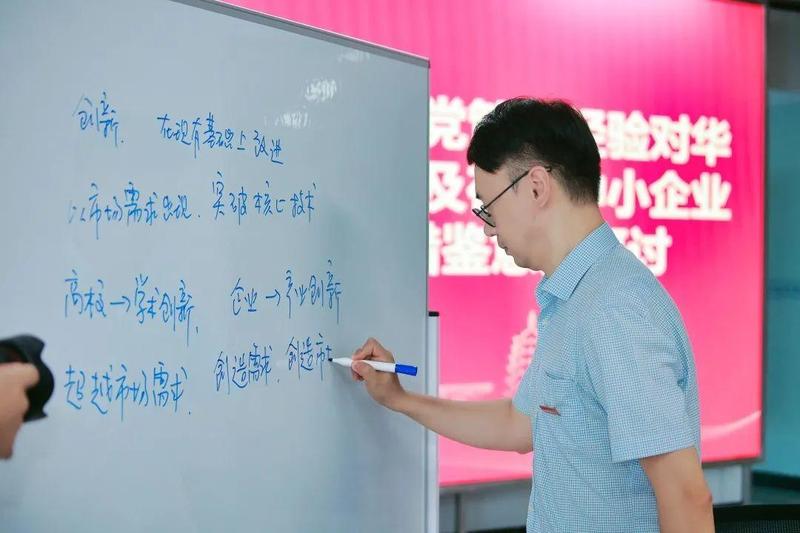 创新. 在现有基础上改进
以市场需求出现. 突破核心技术
高校→学术创新. 企业→产业创新
超越市场需求. 创造需求. 创造市
党 经验对华
及 小企业
鉴 讨